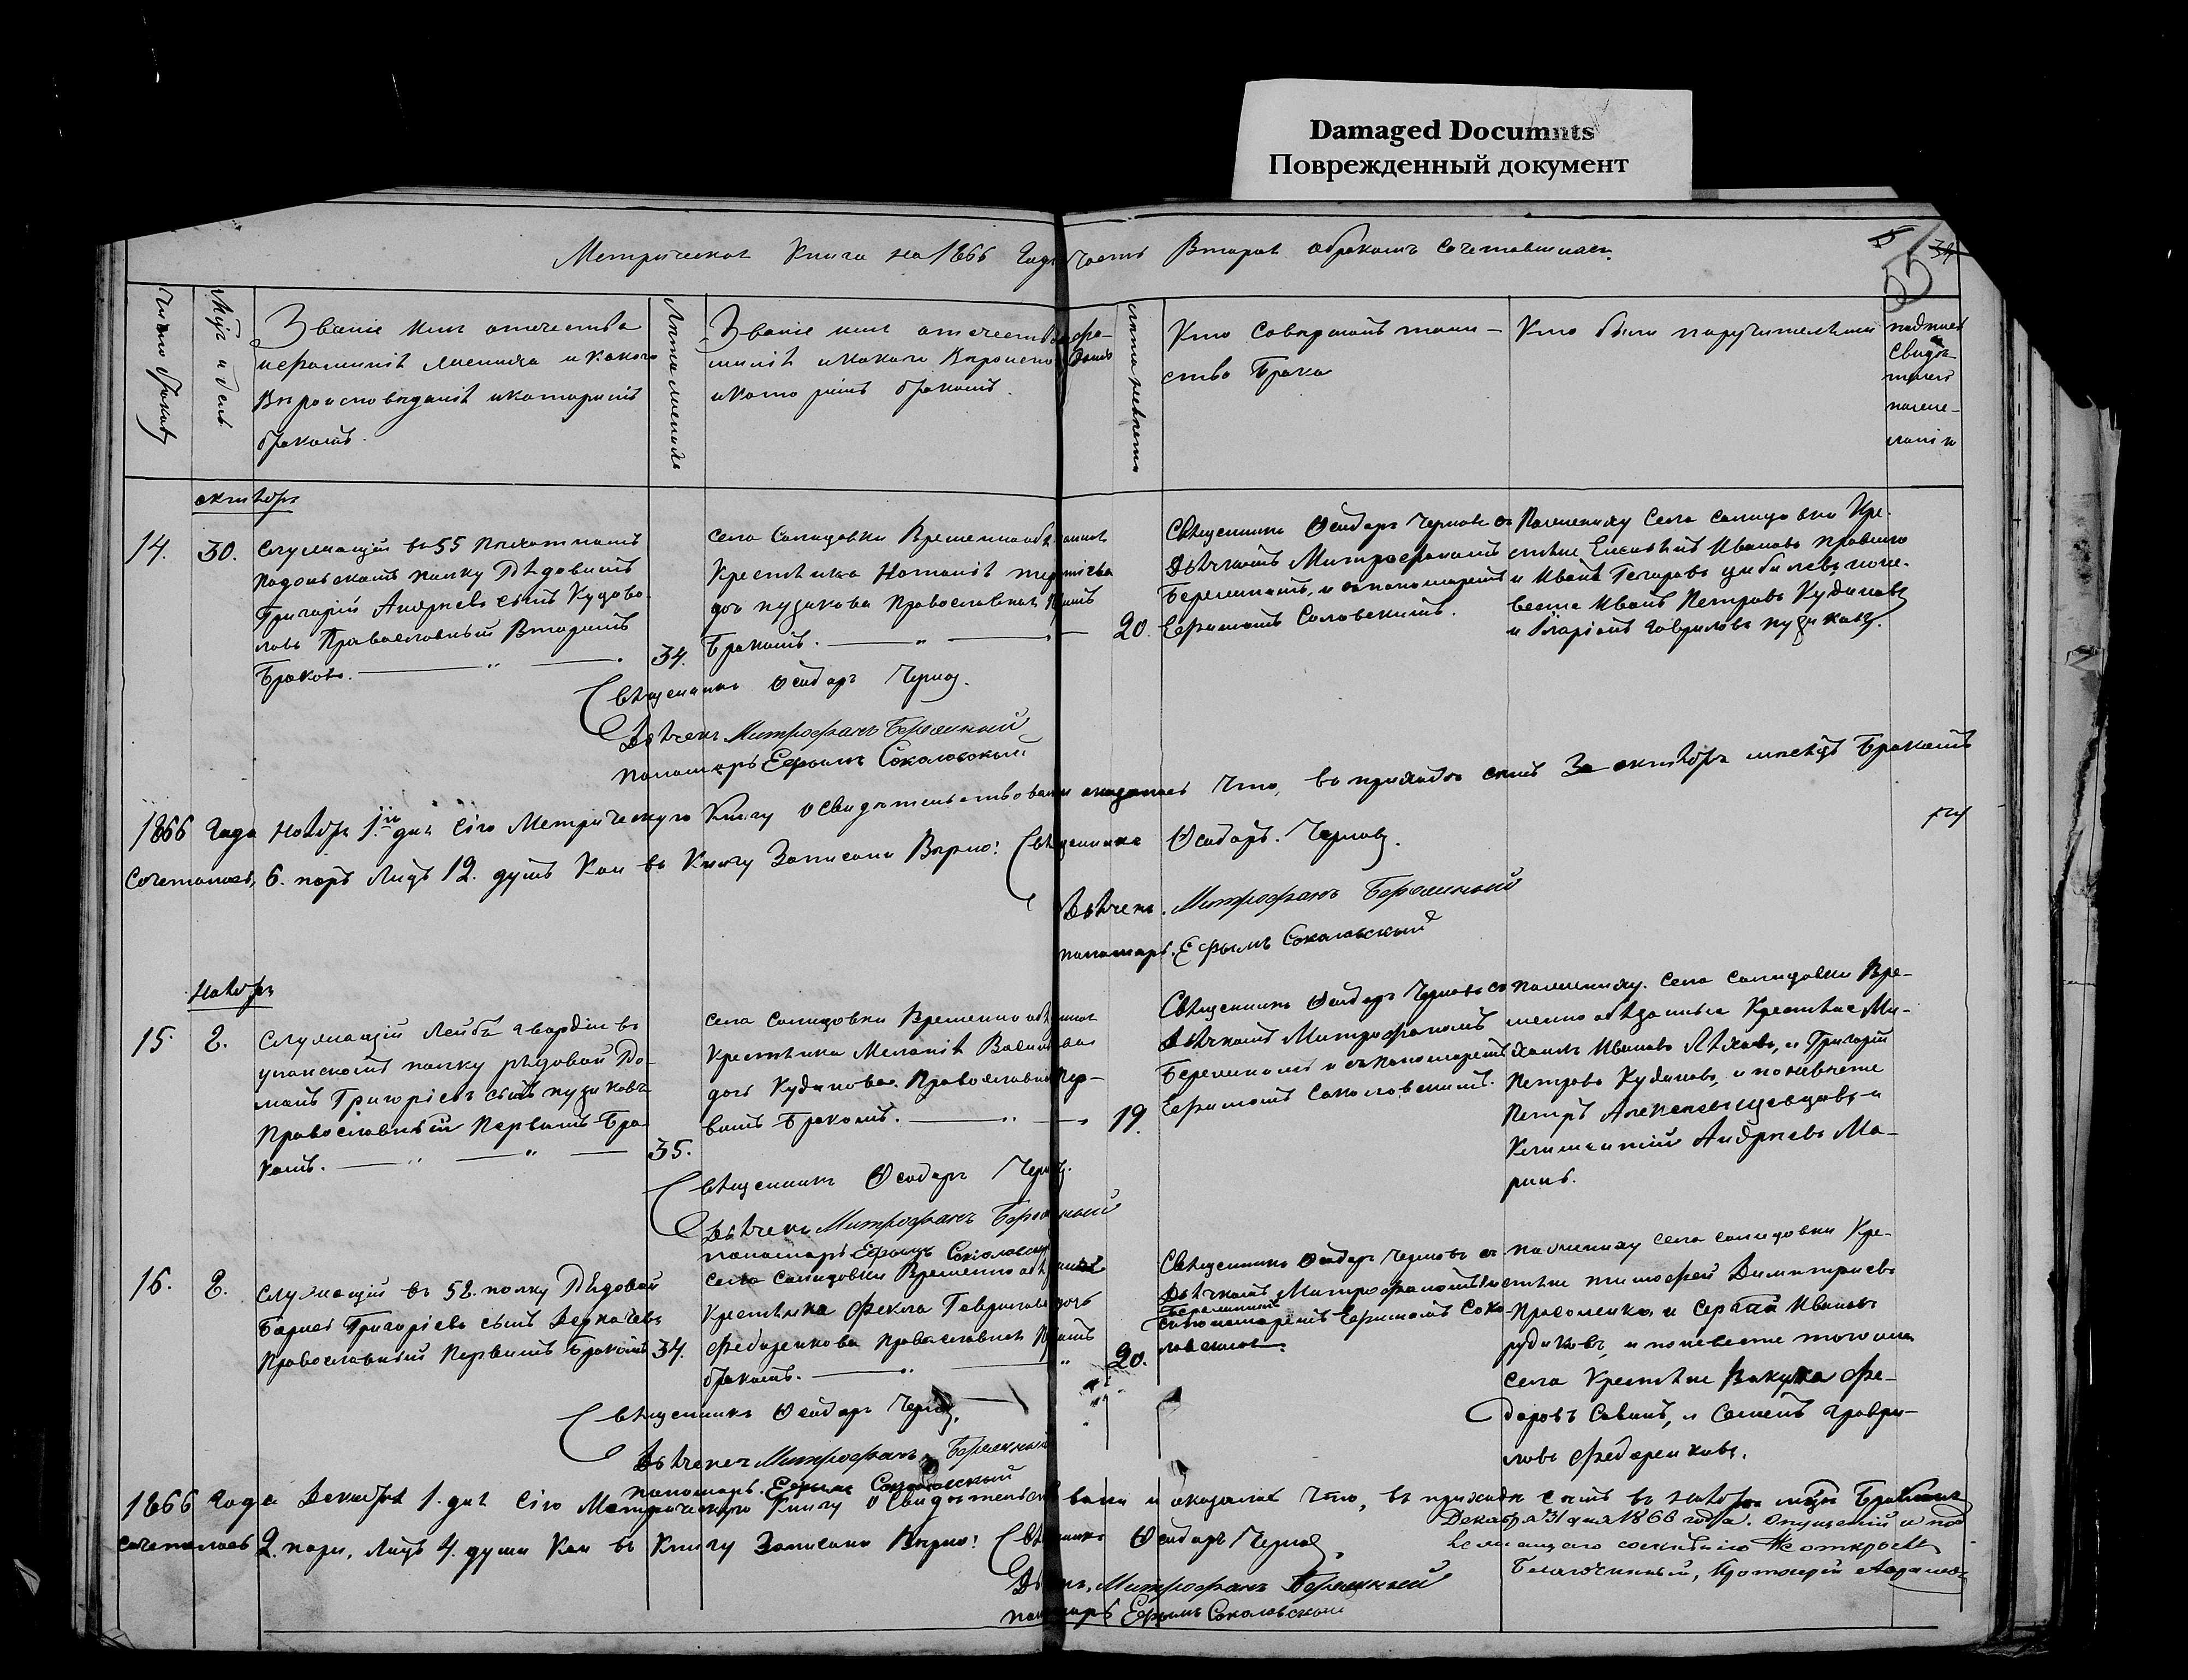 Damaged Documnts
Поврежденный документ
Метрическая Книга на 1866 Годъ Часть Вторая о бракомъ сочетавшихся.
34
55
Число браковъ
Мѣсяцъ и день
Званіе имя отечество
и фамилія жениха и какого
Вѣроисповѣданія и которымъ
бракомъ.
Лѣта жениха
Званіе имя отечество фа-
милія и какого Вѣроиспо
и которымъ бракомъ.
Лѣта невѣсты
Кто Совершалъ таин-
ство Брака
Кто были поручители
подпись
Свидѣ-
телей
октября
14.
30.
Служащій въ 55 Пѣхотномъ
Подольскомъ полку Рѣдовый
Григорій Андреевъ сынъ
Православный Вторымъ
Бракомъ.
34.
села Солидовки Временнообязанная
Крестьянка Наталія
дочь пузикова Православная
Бракомъ.
20.
Священникъ Ѳеодоръ Черновъ съ
Дьячкомъ Митрофаномъ
Бережнымъ, и съ пономаремъ
Ефимомъ Соколовскимъ.
По жениху Села солидовки Кре-
стьяне Ивановъ
и Иванъ по не-
весте Иванъ Петровъ Кудиновъ
и Иларіонъ Гавриловъ пузиковъ.
Священникъ Ѳеодоръ Черновъ.
Дьячекъ Митрофанъ Бережный
пономарь Ефимъ Соколовский
1866 Года Ноября 1го дня Сію Метрическую Книгу Освидетельствовали оказалось Что, въ приходѣ семъ За октябрь месяцъ Бракомъ
Сочеталось, 6. паръ Лицъ 12. душъ Кои въ Книгу Записаны Вѣрно: Священникъ Ѳеодоръ Черновъ.
Дьячекъ. Митрофанъ Бережный
пономарь. Ефимъ Соколовский
Ноябрь
15.
2.
Служащій Лейбъ гвардіи въ
уланскомъ полку рядовой Ро-
манъ Григорьевъ сынъ пузиковъ
Православный Первымъ Бра-
комъ.
35.
Села Солидовки Временнообязанная
Крестьянка Меланія Васильева
дочь Кудинова. Православная Пер-
вымъ Бракомъ.
19.
Священникъ Ѳеодоръ Черновъ съ
Дьячкомъ Митрофаномъ
Бережнымъ и съ пономаремъ
Ефимомъ Соколовскимъ.
По жениху. Села солидовки Вре-
менно обязанные Крестьяне Ми-
хаилъ Ивановъ Ляховъ, и Григорій
Петровъ Кудиновъ, и по невѣсте
Петръ Алексеевъ и
Климентій Андреевъ Ма-
ринъ.
Священникъ Ѳеодоръ Черновъ.
Дьячекъ Митрофанъ Бережный
пономарь Ефимъ Соколовский
16.
2.
Служащій въ 52. полку Рѣдовой
Григорьевъ сынъ Деркачевъ
Православный Первымъ Бракомъ
34.
села солидовки Временнообязанная
Крестьянка Фекла Гаврилова дочь
Федоренкова Православная
бракомъ.
20.
Священникъ Ѳеодоръ Черновъ съ
Дьячкомъ Митрофаномъ
Бережнымъ
съ пономаремъ Ефимомъ Соко-
ловскимъ.
по жениху села солидовки Кре-
стьяне тимофей Димитриевъ
и Сергей Ивановъ
рудиковъ, и по невесте того же
села Крестьяне Вакула Фе-
доровъ Савинъ, и Семенъ Гаври-
ловъ Федоренковъ.
Священникъ Ѳеодоръ Черновъ.
Дьячекъ Митрофанъ Бережный
пономарь. Ефимъ Соколовский
1866 Года Декабря 1. дня Сію Метрическую Книгу Освидетельствовали и оказалось Что, въ приходѣ семъ въ Ноябрѣ мцѣ Бракомъ
сочеталось 2. пары, лицъ 4. души Кои въ Книгу Записаны Вѣрно: Священникъ Ѳеодоръ Черновъ.
Дьячекъ, Митрофанъ Бережный
пономарь Ефимъ Соколовский
Декабря 31 дня 1866 года. Опущеній и под-
сомнѣнію не открылъ
Благочинный, Протоіерей